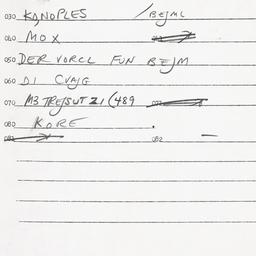 030 KANOPLES / BEJML
040 MOX
050 DER VORCL FUN BEJM
060 DI CVAJG
070 M3 TREJSUT ZI (489
080 KORE .
081 082 —